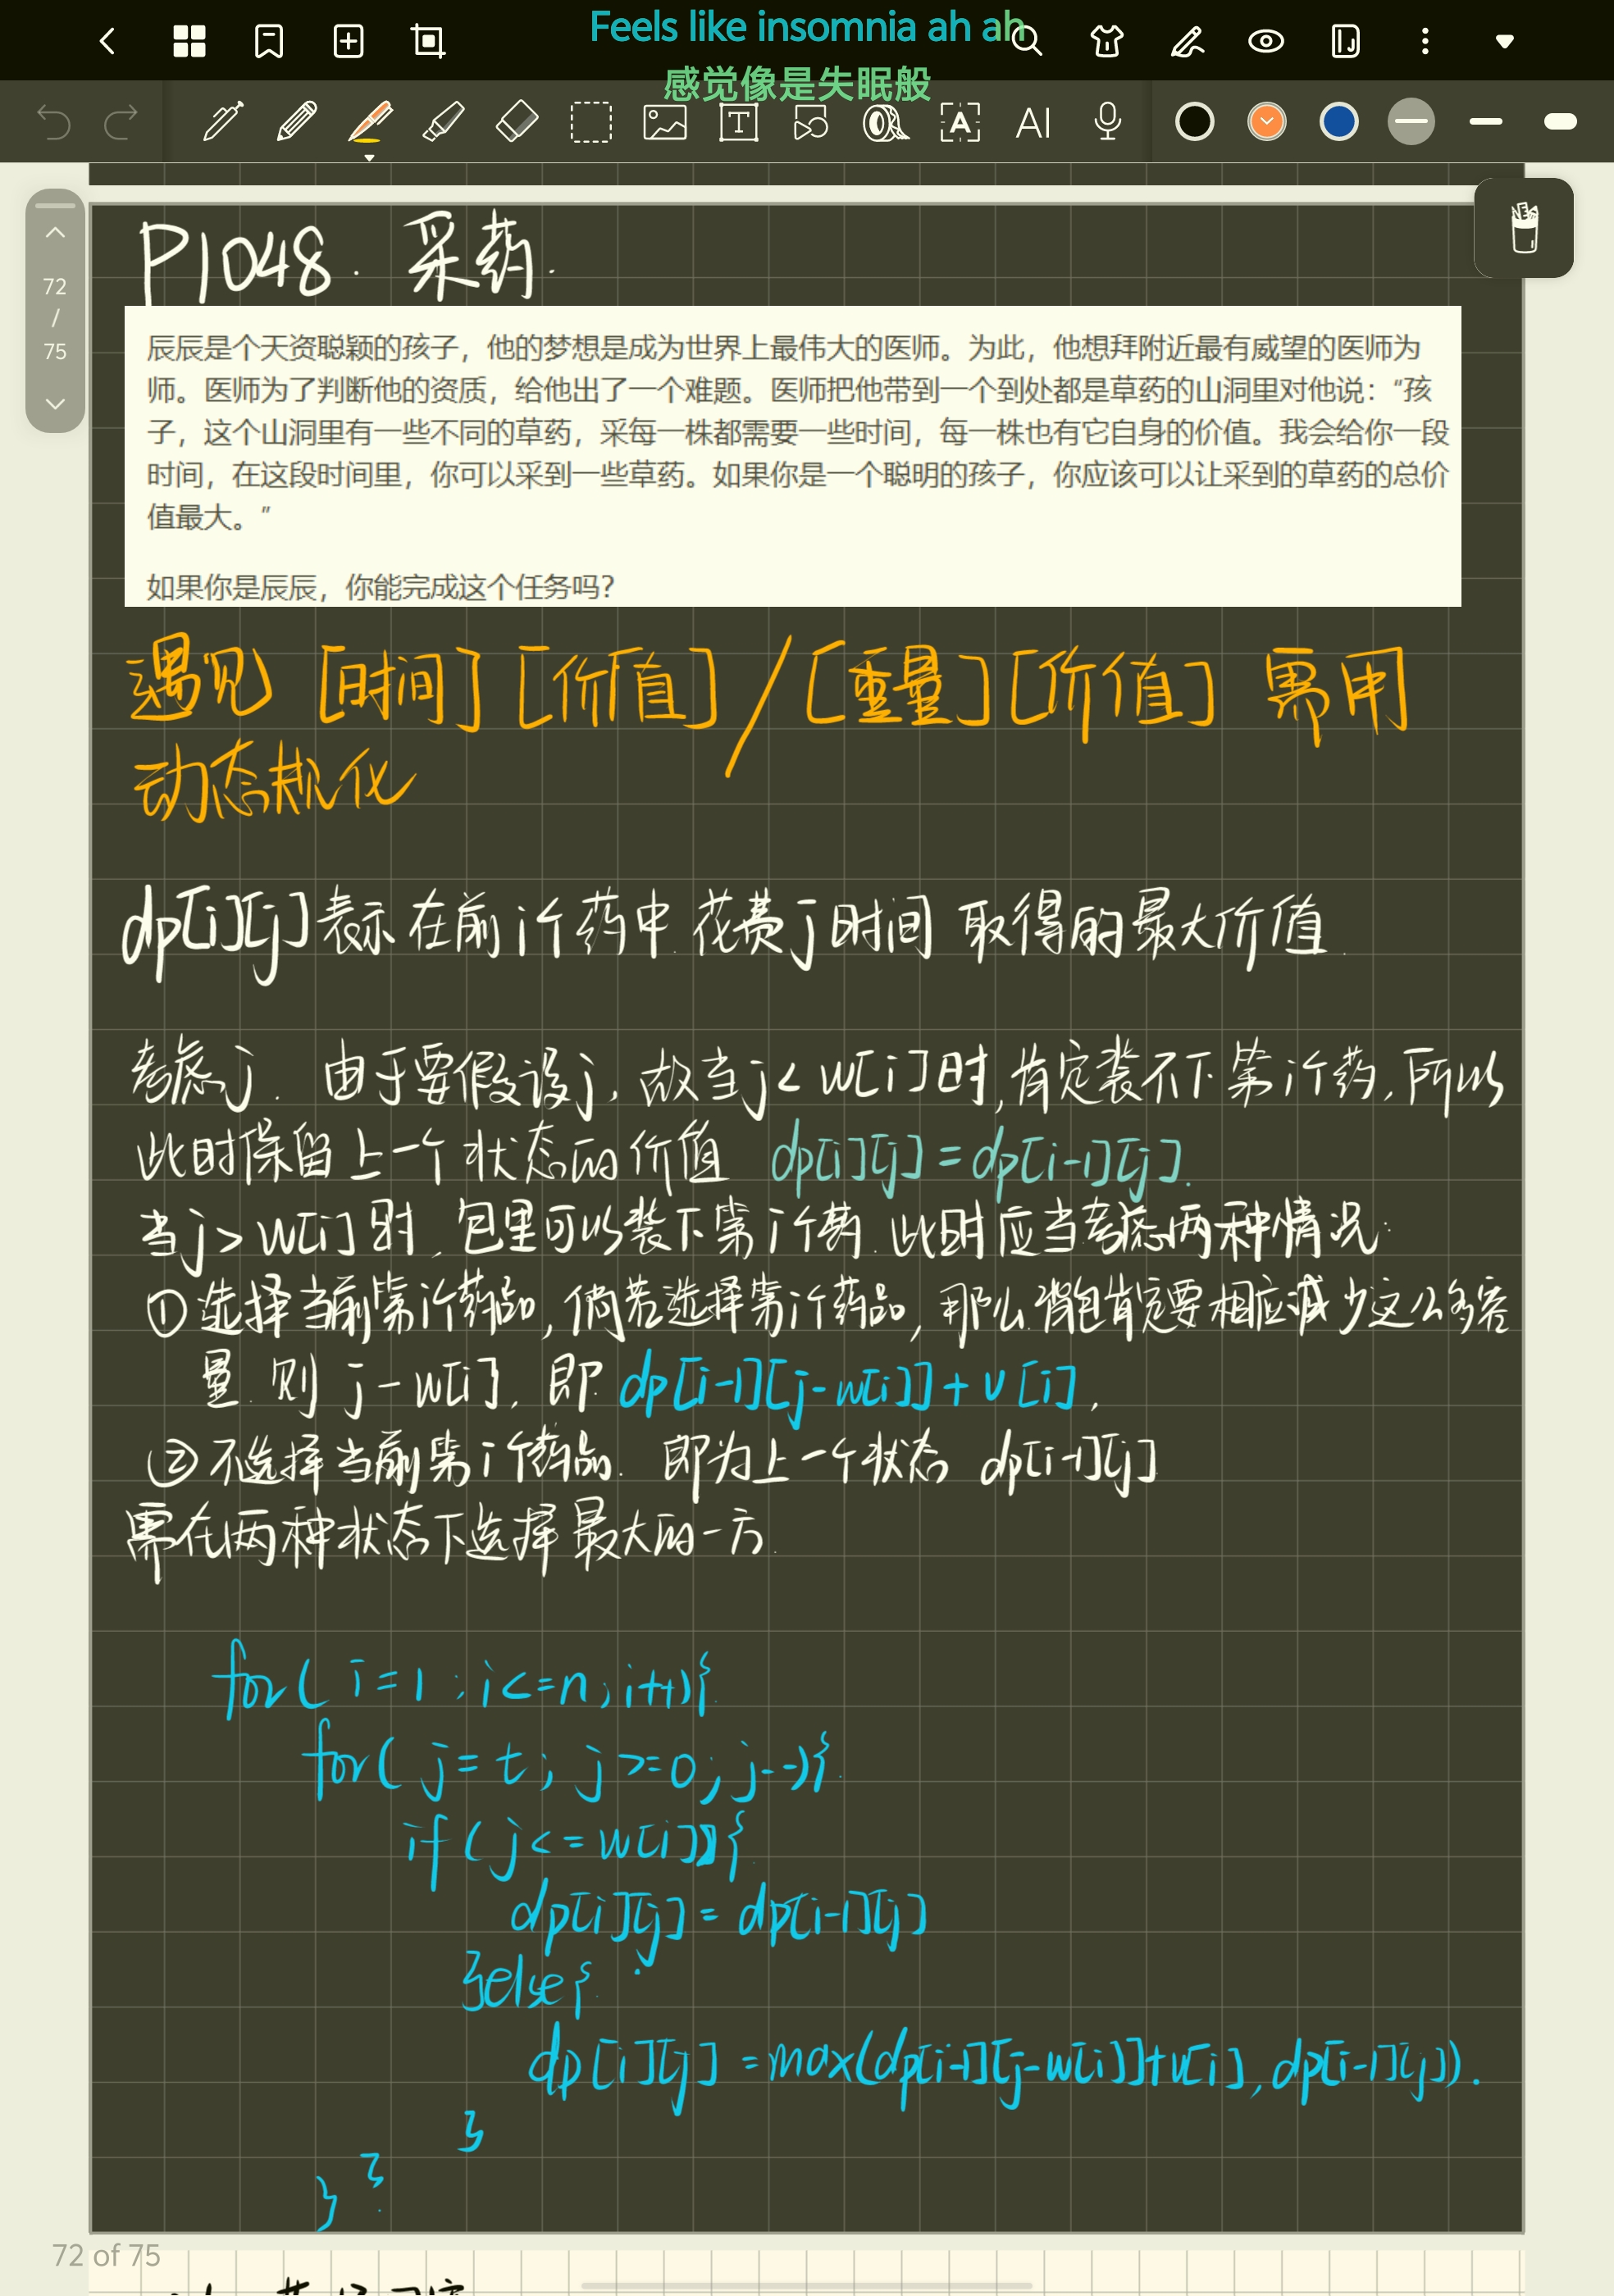 Feels like insomnia ah ah
感觉像是失眠般
T
A
AI
72
/
75
P1048. 采药.
辰辰是个天资聪颖的孩子，他的梦想是成为世界上最伟大的医师。为此，他想拜附近最有威望的医师为
师。医师为了判断他的资质，给他出了一个难题。医师把他带到一个到处都是草药的山洞里对他说：“孩
子，这个山洞里有一些不同的草药，采每一株都需要一些时间，每一株也有它自身的价值。我会给你一段
时间，在这段时间里，你可以采到一些草药。如果你是一个聪明的孩子，你应该可以让采到的草药的总价
值最大。”
如果你是辰辰，你能完成这个任务吗？
遇见 [时间][价值]/[重量][价值] 需用
动态规化
dp[i][j]表示在前i个药中.花费j时间 取得的最大价值.
考虑j. 由于要假设j, 故当j< w[i]时,肯定装不下第i个药.所以
此时保留上一个状态的价值 dp[i][j]=dp[i-1][j].
当j>w[i]时.包里可以装下第i个药.此时应当考虑两种情况:
①选择当前第i个药品,倘若选择第i个药品,那么背包肯定要相应减少这么多容
量.则 j-w[i]. 即 dp[i-1][j-w[i]]+v[i],
②不选择当前第i个药品. 即为上一个状态 dp[i-1][j]
需在两种状态下选择最大的一方.
for( i=1;i<=n;i++){
for( j=t; j>=0;j--){
if(j<=w[i]){
dp[i][j]=dp[i-1][j]
}else{
dp[i][j]=max(dp[i-1][j-w[i]]+v[i],dp[i-1][j]).
}
}
}
72 of 75